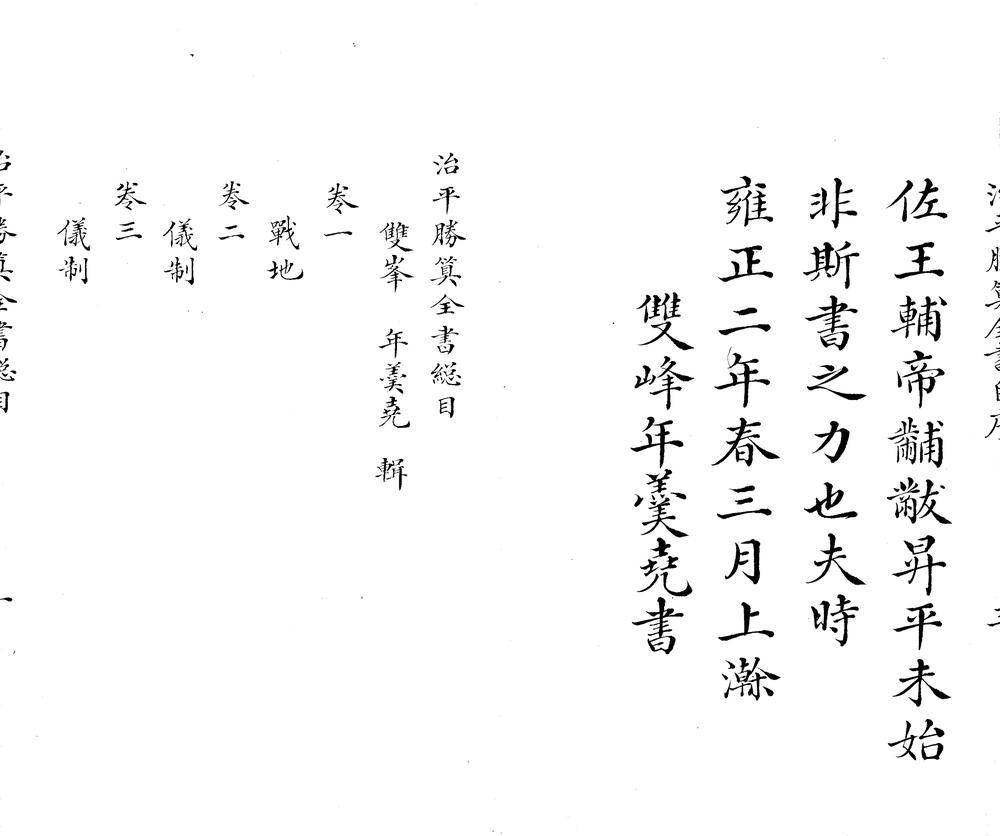 治平勝筭全書自序
佐王輔帝黼黻昇平未始
非斯書之力也夫時
雍正二年春三月上澣
雙峰年羹堯書
治平勝筭全書総目
雙峯 年羹堯 輯
卷一
戰地
卷二
儀制
卷三
儀制
治平勝筭全書総目
一